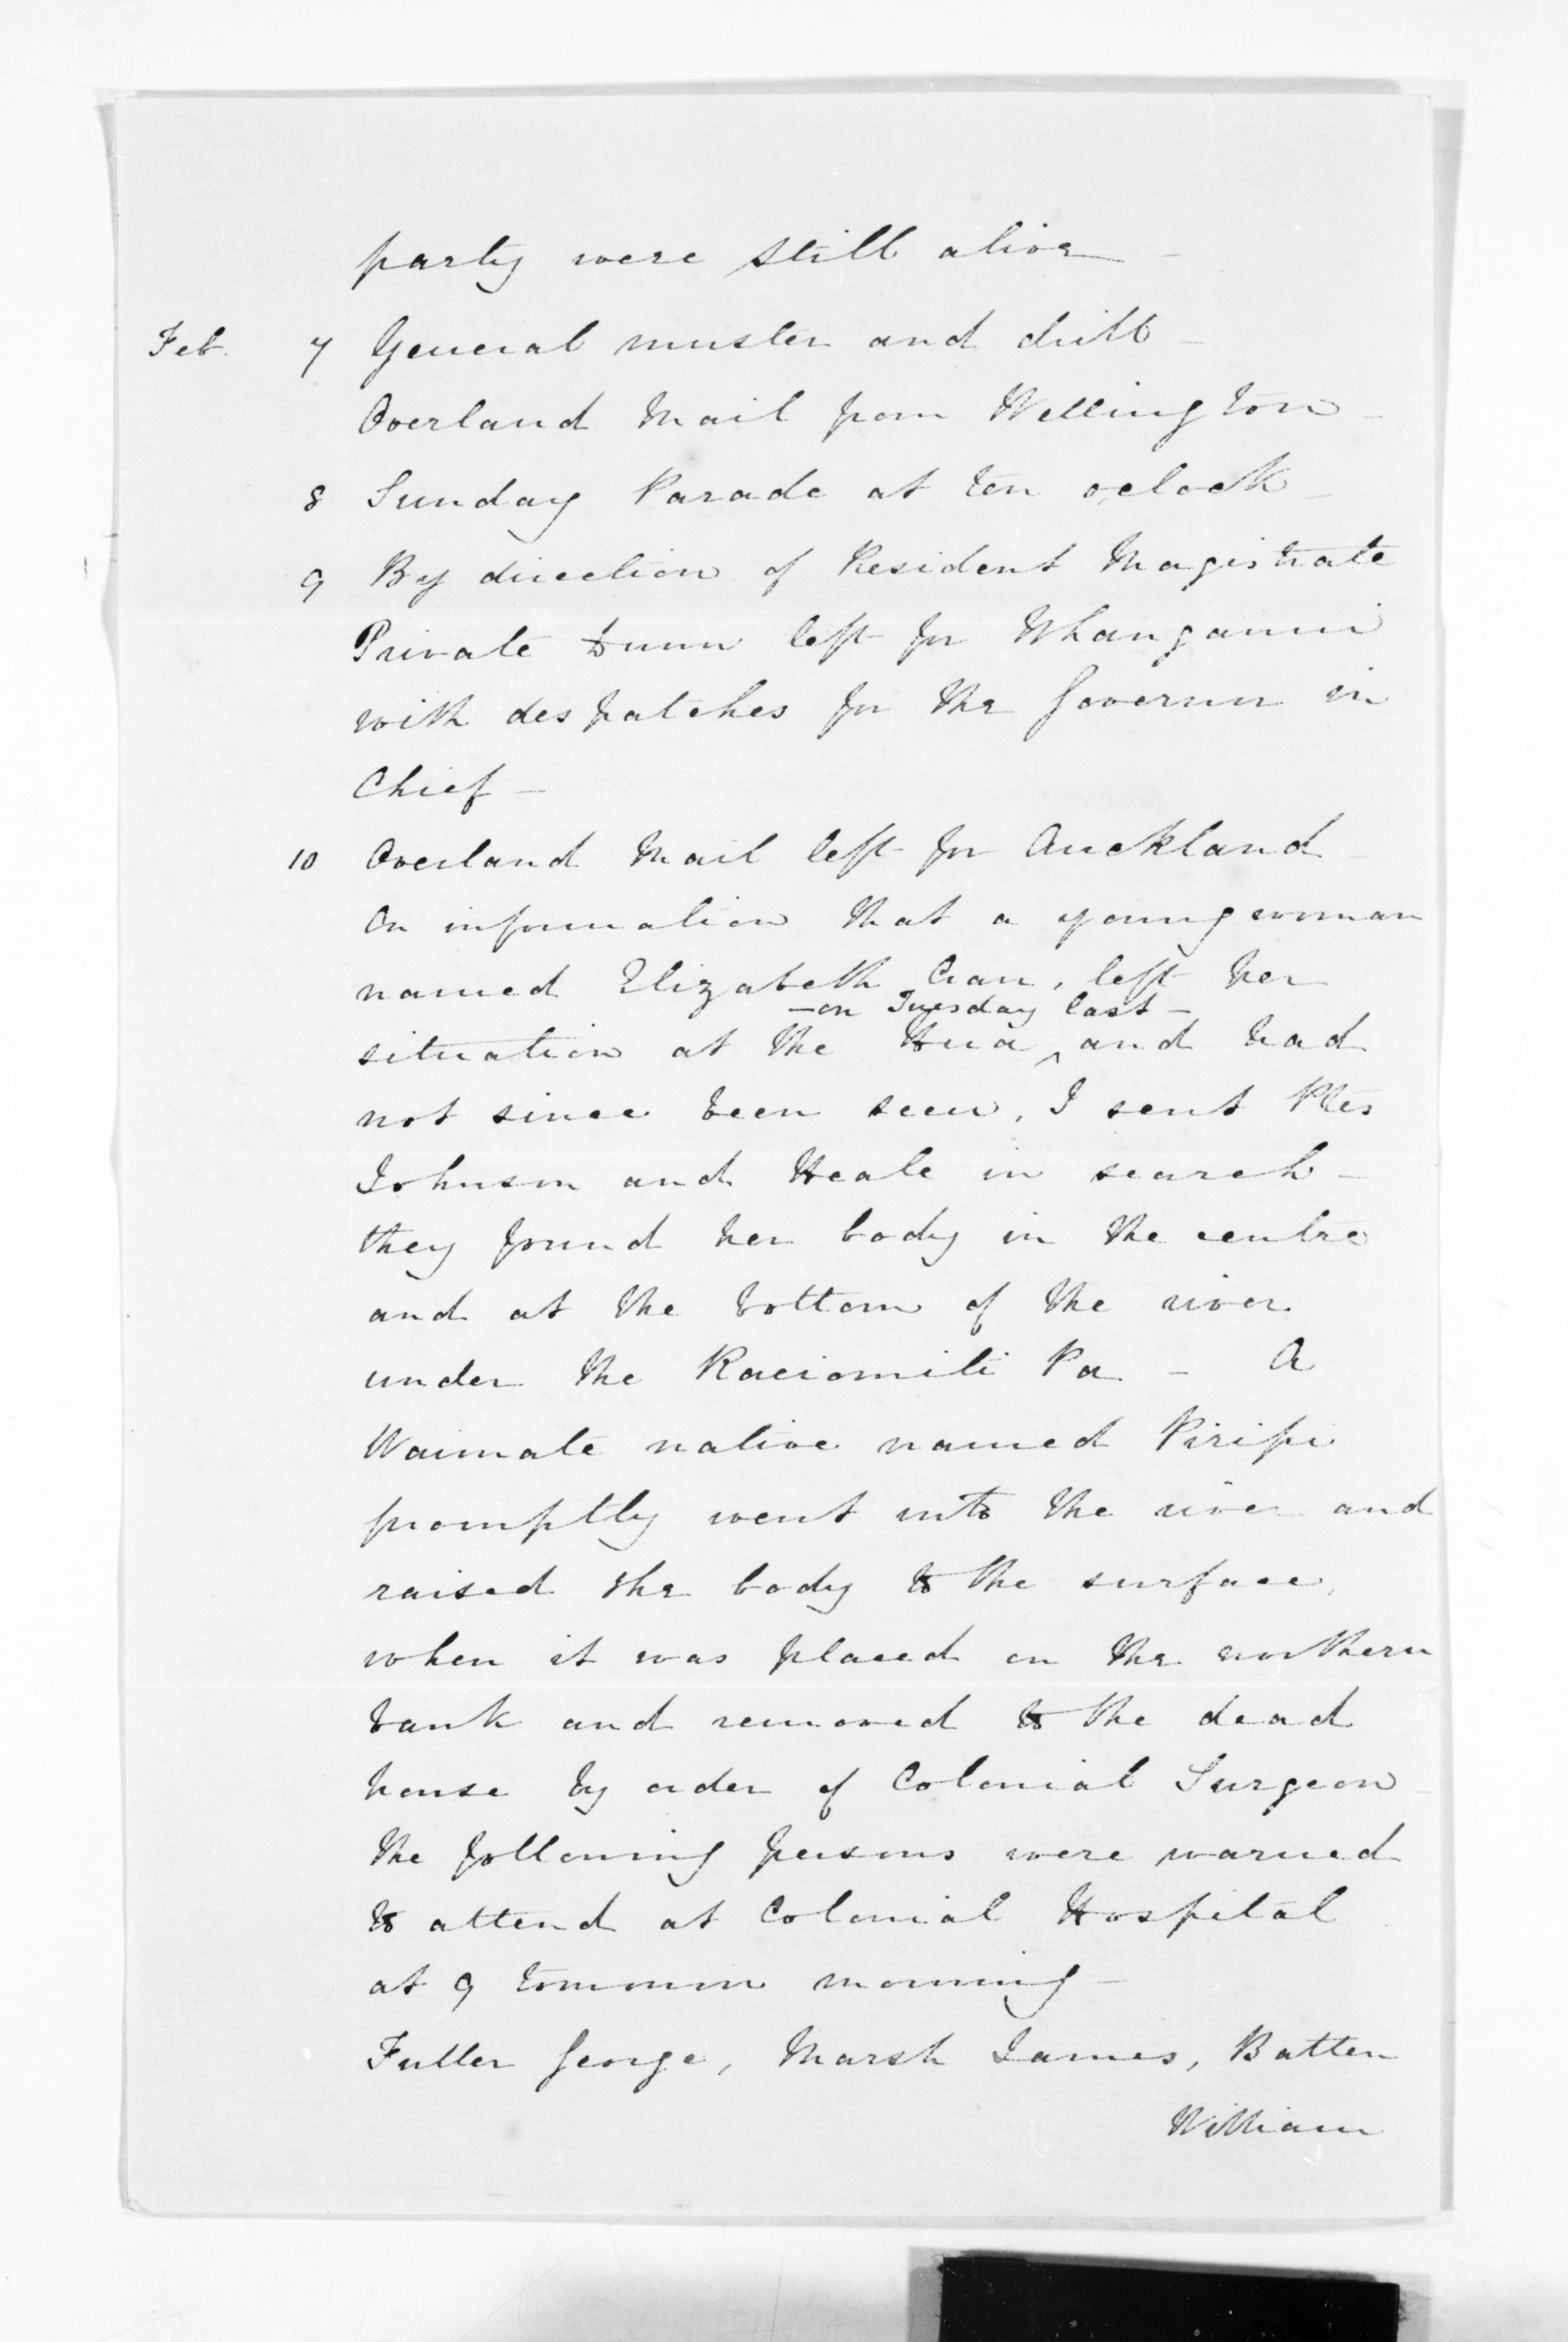 party were still alive —
Feb. 7 General muster and drill —
Overland Mail from Wellington —
8 Sunday Parade at ten oclock —
9 By direction of Resident Magistrate
Private Dunn left for Whanganui
with despatches for the Governor in
Chief —
10 Overland Mail left for Auckland
On information that a young woman
named Elizabeth, left her
— on Tuesday last —
situation at the Hua ^ and had
not since been seen, I sent Ptes
Johnson and Heale in search —
they found her body in the centre
and at the bottom of the river
under the Pa. — A
Waimate native named Piripi
promptly went into the river and
raised the body to the surface,
when it was placed on the northern
bank and removed to the dead
house by order of Colonial Surgeon —
the following persons were warned
to attend at Colonial Hospital
at 9 tomorrow morning —
Fuller George, Marsh James, Batten
William